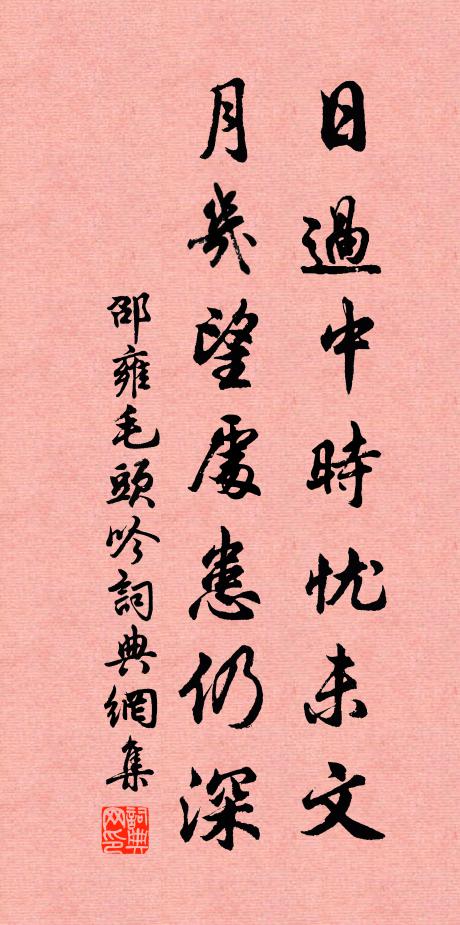 日過中時忧未文
月幾望處患仍深
邵雍毛頭吟詞典網集
詞典
网印